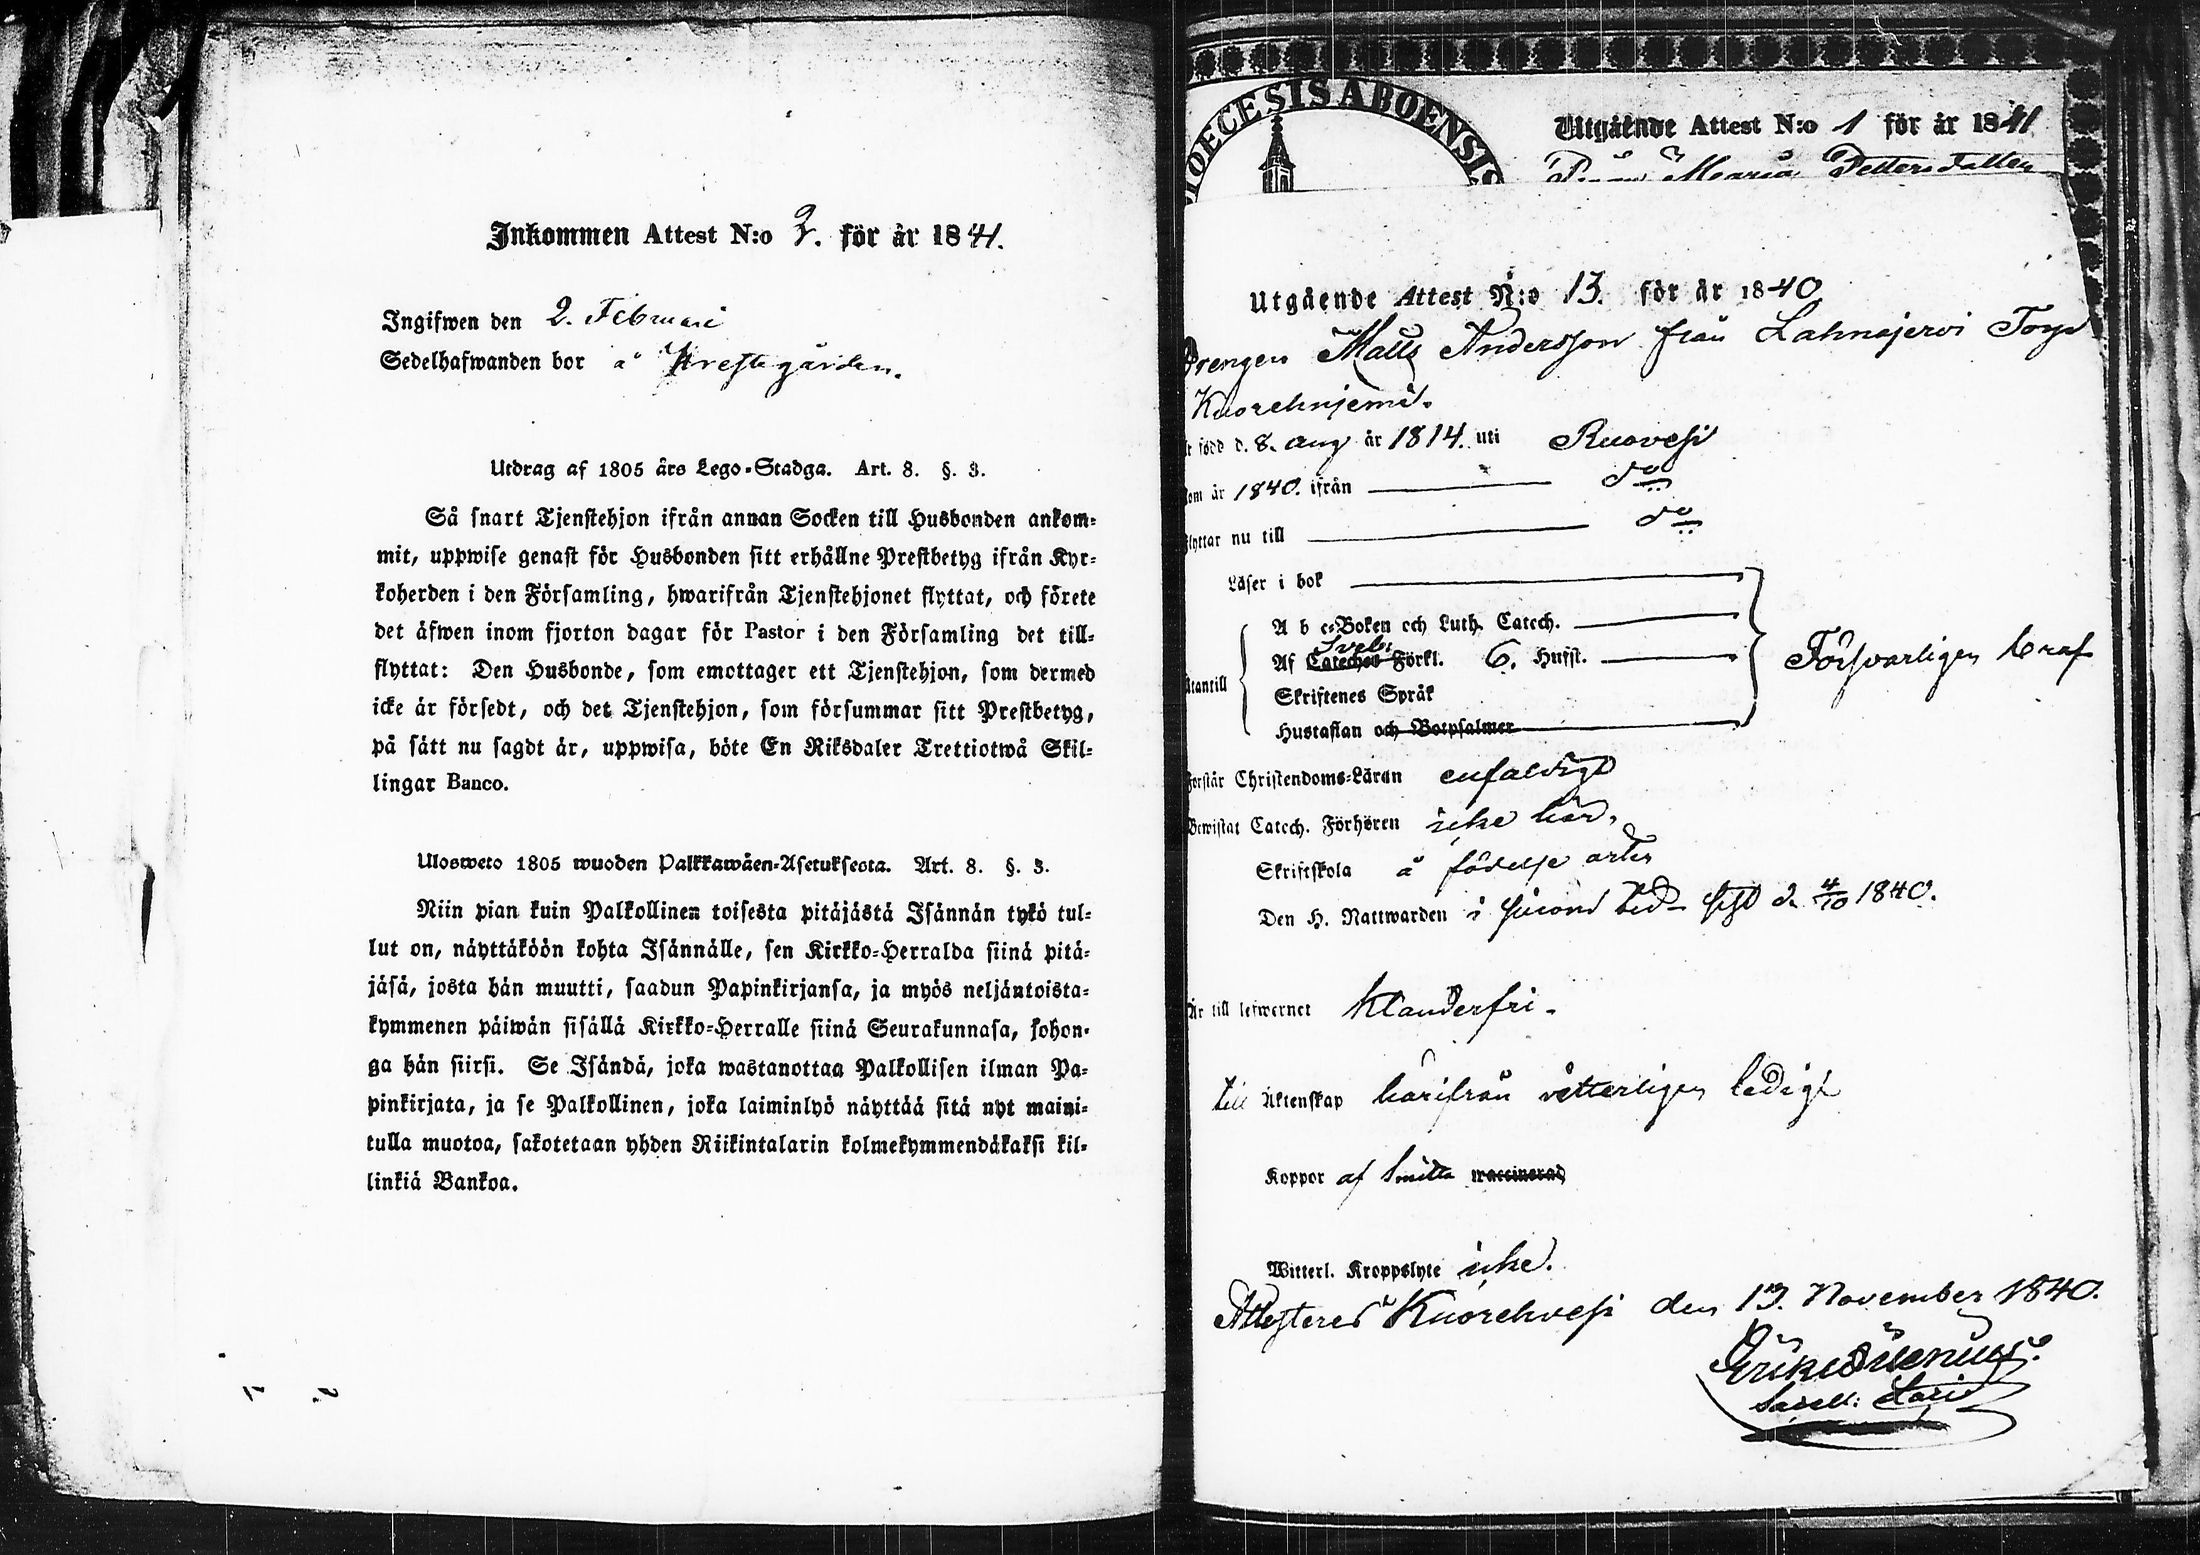 Inkommen Attest N:o 2. för år 1841.
Ingifwen den 2. Februari
Sedelhafwanden bor å Prestegården.
Utdrag af 1805 års Lego-Stadga. Art. 8. §. 3.
Så snart Tjenstehjon ifrån annan Socken till Husbonden ankom-
mit, uppwise genast för Husbonden sitt erhållne Prestbetyg ifrån Kyr-
koherden i den Församling, hwarifrån Tjenstehjonet flyttat, och förete
det äfwen inom fjorton dagar för Pastor i den Församling det till-
flyttat: Den Husbonde, som emottager ett Tjenstehjon, som dermed
icke är försedt, och det Tjenstehjon, som försummar sitt Prestbetyg,
på sätt nu sagdt är, uppwisa, böte En Riksdaler Trettiotwå Skil-
lingar Banco.
Ulosweto 1805 wuoden Palkkawäen-Asetuksesta. Art. 8. §. 3.
Niin pian kuin Palkollinen toisesta pitäjästä Isännän tykö tul-
lut on, näyttäköön kohta Isännälle, sen Kirkko-Herralda siinä pitä-
jäsä, josta hän muutti, saadun Papinkirjansa, ja myös neljäntoista-
kymmenen päiwän sisällä Kirkko-Herralle siinä Seurakunnasa, johon-
ga hän siirsi. Se Isändä, joka wastanottaa Palkollisen ilman Pa-
pinkirjata, ja se Palkollinen, joka laiminlyö näyttää sitä nyt maini-
tulla muotoa, sakotetaan yhden Riikintalarin kolmekymmendäkaksi kil-
linkiä Bankoa.
DIOECESIS ABOENSIS
Utgående Attest N:o 1 för år 1841
Maria Pettersdotter
Utgående Attest N:o 13. för år 1840
Drengen Matts Andersson från Lahnajervi Torp
Kuorehnjemi.
är född d. 8. aug år 1814. uti Ruovesi
kom år 1840. ifrån do
flyttar nu till do
Läser i bok
A b c-Boken och Luth. Catech.
Svebi
Af Cateches Förkl. 6. Hufst. Försvarligen
Utantill
Skriftenes Språk
Hustaflan och Botpsalmer
Förstår Christendoms-Läran enfaldigt
Bewistat Catech. Förhören icke här.
Skriftskola å födelse orten
Den H. Nattwarden i sist d. 4/10 1840.
Är till lefwernet Klanderfri.
till Äktenskap härifrån vetterligen ledig
Koppor af Smitta waccinerad
Witterl. Kroppslyte icke.
Attesterar Kuorehvesi den 13. November 1840.